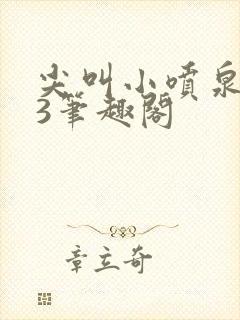 尖叫小喷泉
3笔趣阁
章立奇